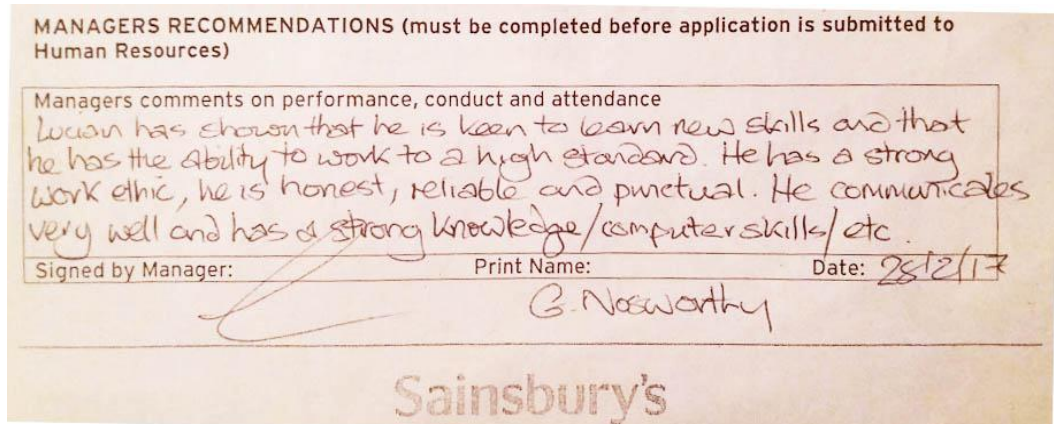 MANAGERS RECOMMENDATIONS (must be completed before application is submitted to
Human Resources)
Managers comments on performance, conduct and attendance
Lucian has shown that he is keen to learn new skills and that
he has the ability to work to a high standard. He has a strong
work ethic, he is honest, reliable and punctual. He communicates
very well and has a strong knowledge/computer skills/etc.
Signed by Manager: Print Name: Date: 28/2/17
G. Nosworthy
Sainsbury's